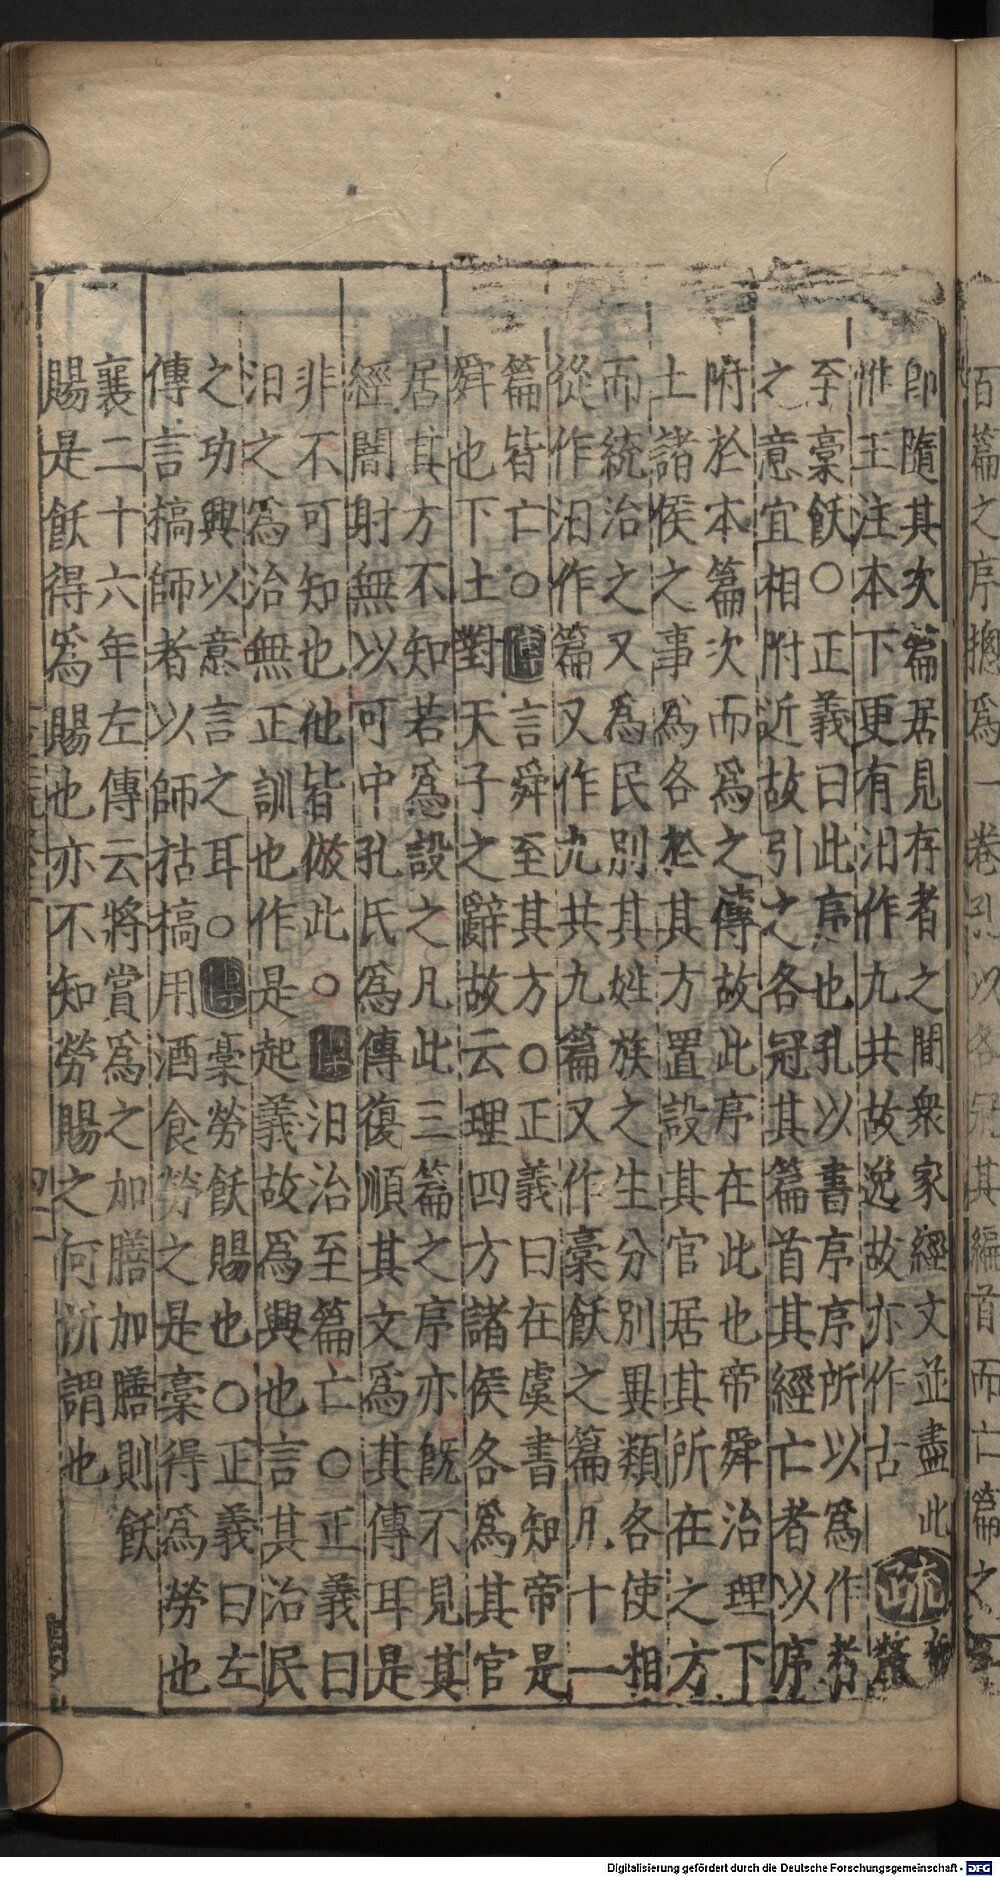 百篇之序揔爲一卷孔以各冠其編首而亡篇之
即隨其次篇居見存者之間衆家經文並盡此
惟王注本下更有汨作九共故逸故亦作古疏釐
至槀飫〇正義曰此序也孔以書序序所以爲作者
之意宜相附近故引之各冠其篇首其經亡者以序
附於本篇次而爲之傳故此序在此也帝舜治理下
土諸侯之事爲各於其方置設其官居其所在之方
而統治之又爲民別其姓族之生分別異類各使相
從作汨作篇又作九共九篇又作槀飫之篇凡十一
篇皆亡〇傳言舜至其方〇正義曰在虞書知帝是
舜也下土對天子之辭故云理四方諸侯各爲其官
居其方不知若爲設之凡此三篇之序亦旣不見其
經闇射無以可中孔氏爲傳復順其文爲其傳耳是
非不可知也他皆倣此〇傳汨治至篇亡〇正義曰
汨之爲治無正訓也作是起義故爲興也言其治民
之功興以意言之耳〇傳槀勞飫賜也〇正義曰左
傳言槁師者以師枯槁用酒食勞之是槀得爲勞也
襄二十六年左傳云將賞爲之加膳加膳則飫
賜是飫得爲賜也亦不知勞賜之何所謂也
Digitalisierung gefördert durch die Deutsche Forschungsgemeinschaft - DFG